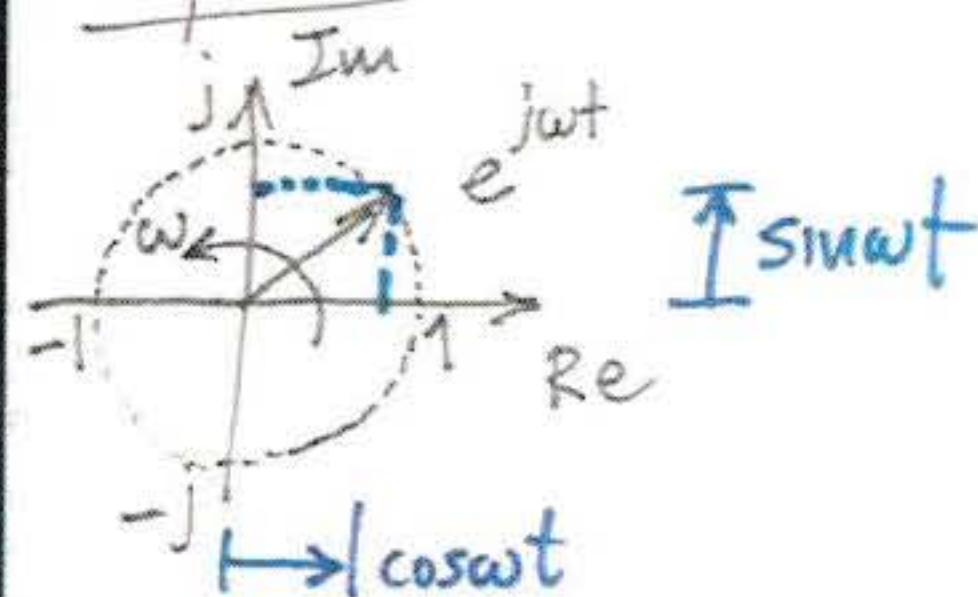 j Im
e^jωt
ω
sinωt
-1
1
Re
-j
cosωt